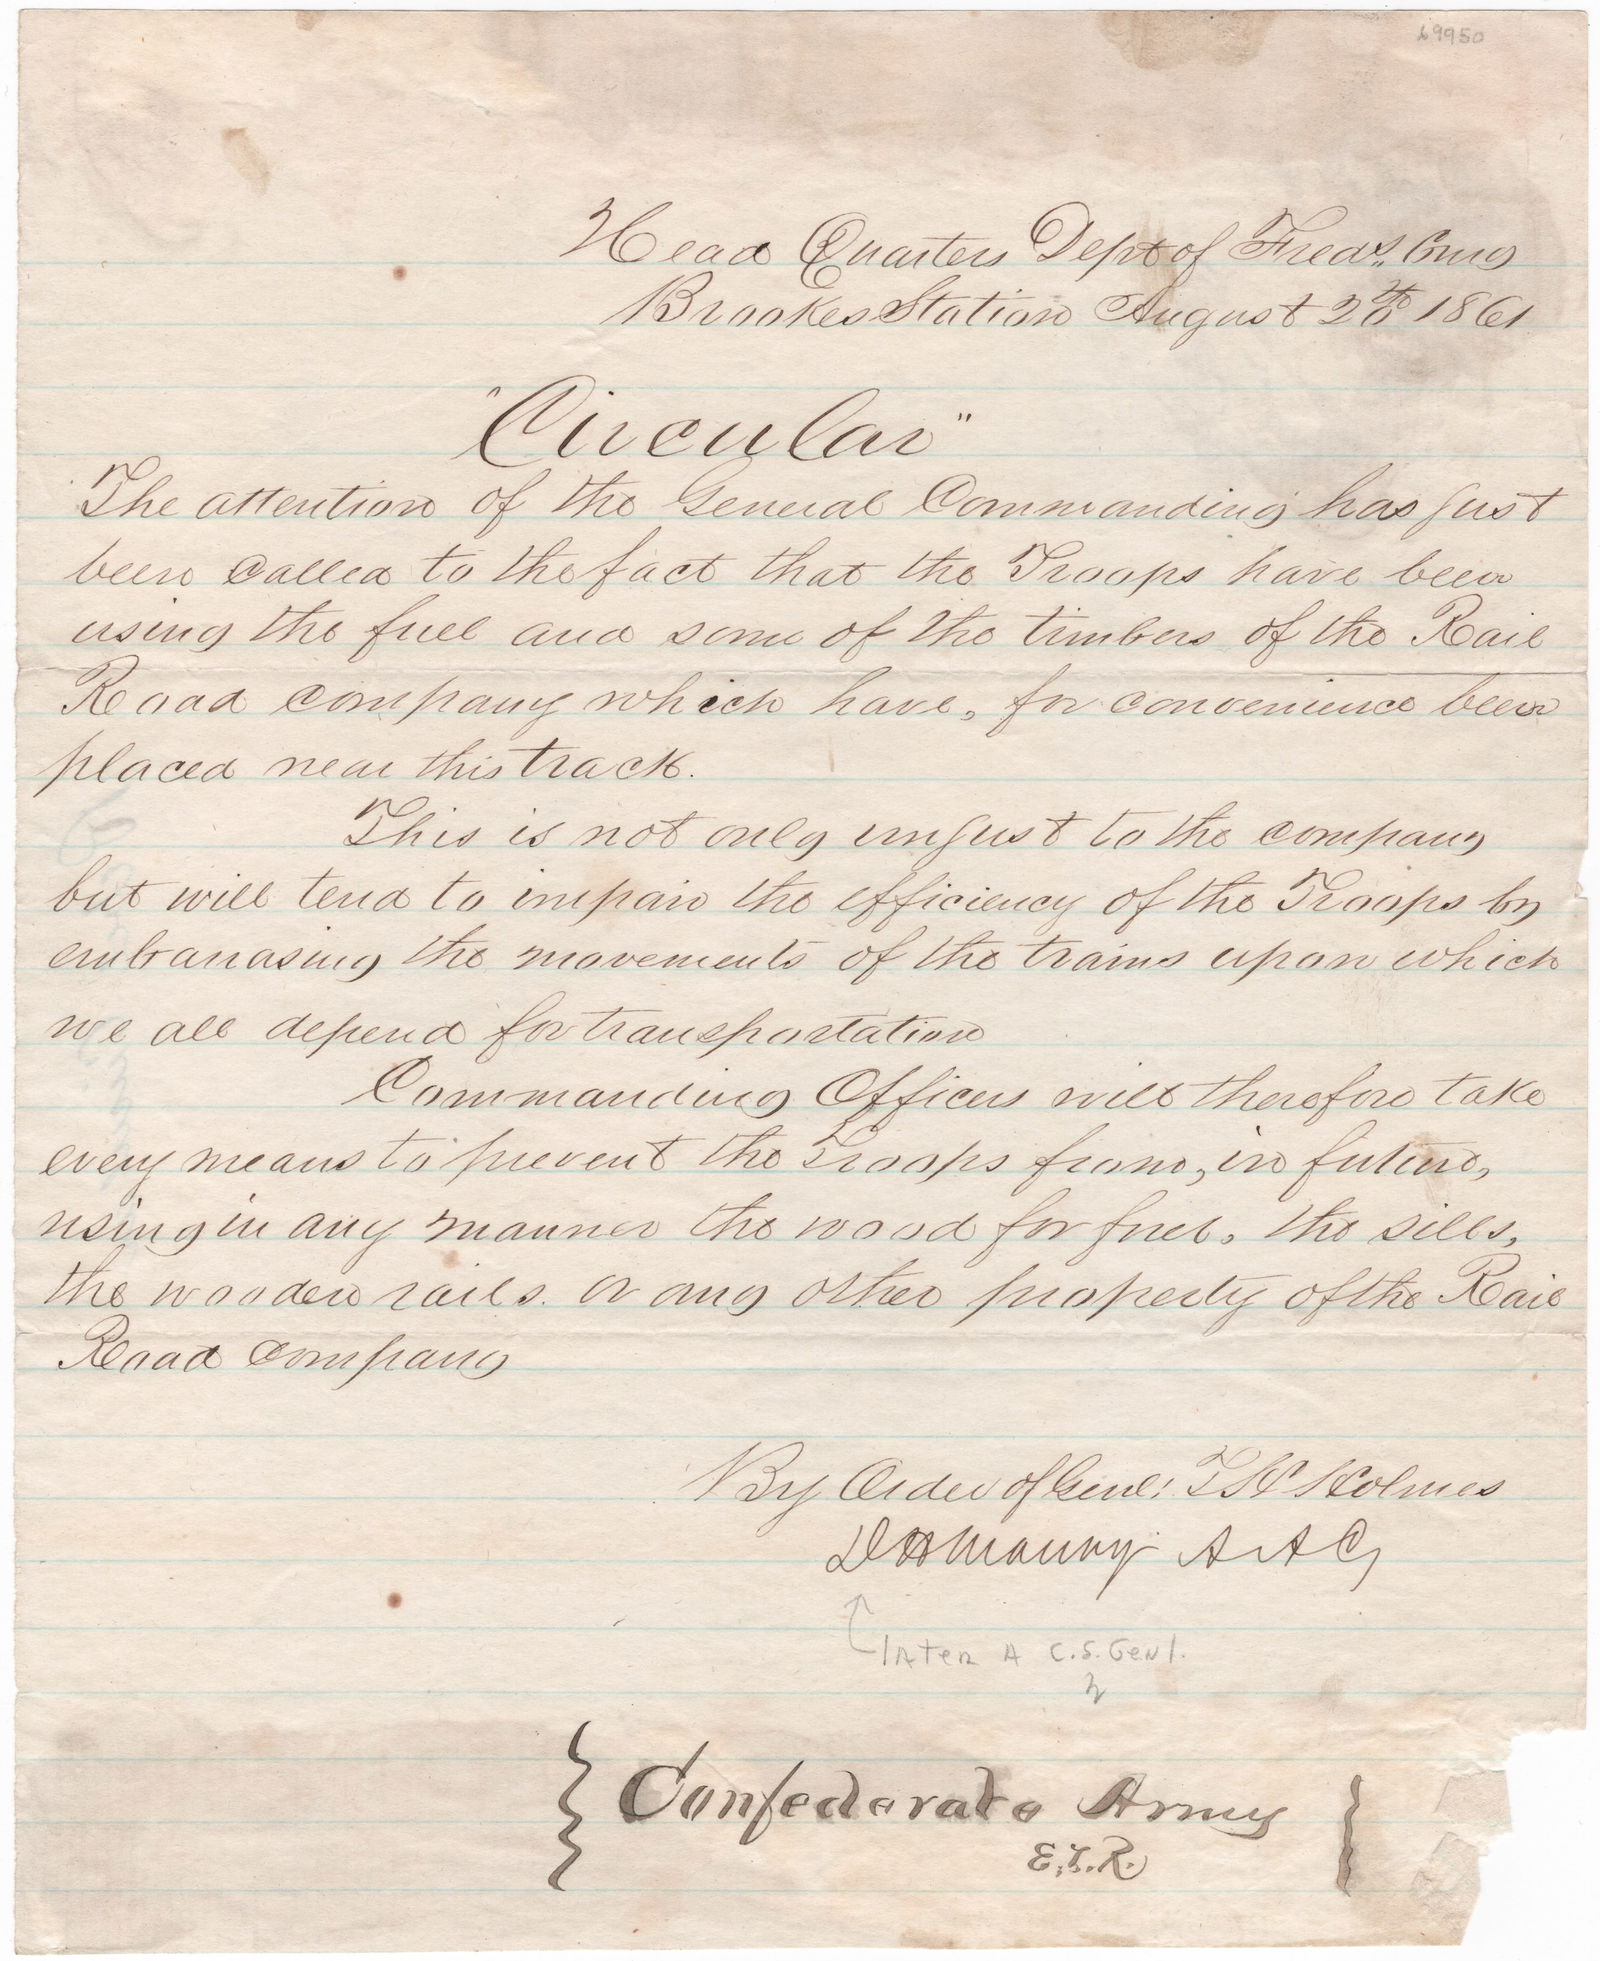 69950
Head Quarters Dept of Fredx,, burg
Brookes Station August 20th 1861
"Circular"
The attention of the General Commanding has just
been called to the fact that the Troops have been
using the fuel and some of the timbers of the Rail
Road company which have, for convenience been
placed near this track.
This is not only unjust to the company
but will tend to impair the efficiency of the Troops by
embarrasing the movements of the trains upon which
we all depend for transportation
Commanding Officers will therefore take
every means to prevent the Troops from, in future,
using in any manner the wood for fuel, the sills,
the wooden rails. or any other property of the Rail
Road company
By Order of Genl: T H Holmes
D H Maury A A G
later A C.S. Genl.
Confederate Army
E.T.R.